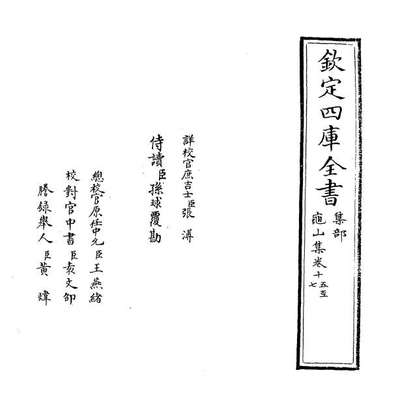 欽定四庫全書
集部
龜山集卷十五至十七
詳校官庶吉士臣張溥
侍讀臣孫球覆勘
總校官原任中允臣王燕緒
校對官中書臣袁文邵
謄録舉人臣黄煒